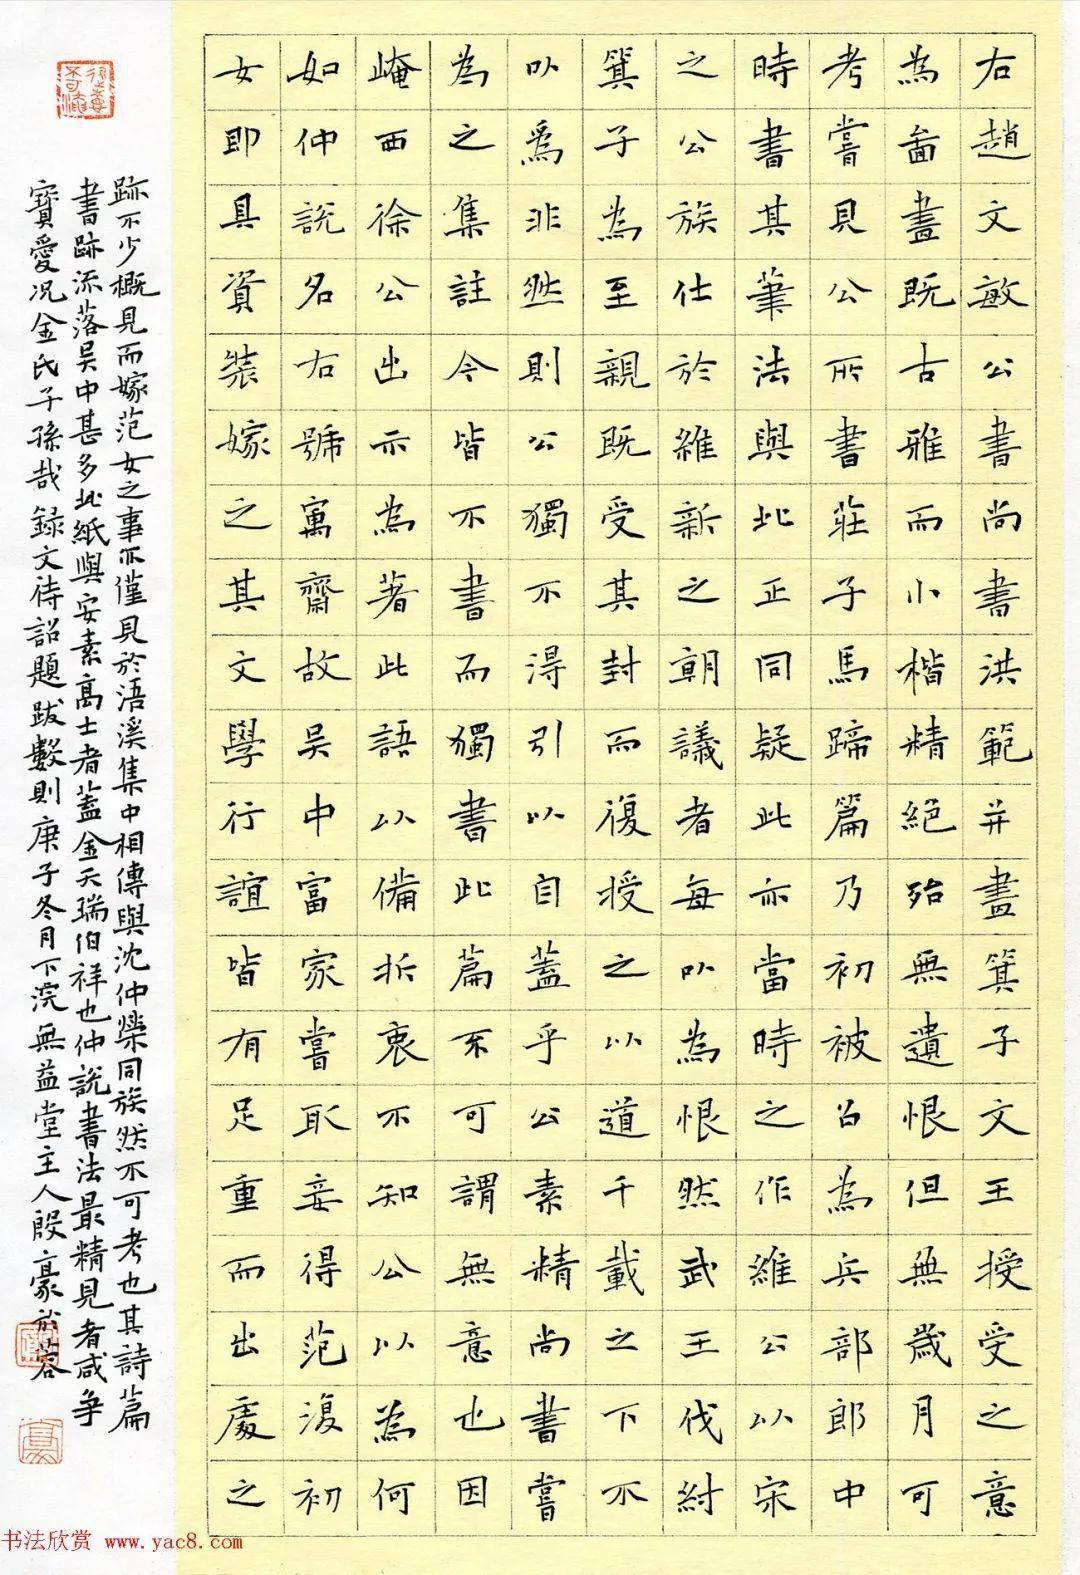 右趙文敏公書尚書洪範并畫箕子文王授受之意
為啚畫既古雅而小楷精絕殆無遺恨但無歲月可
考嘗見公所書莊子馬蹄篇乃初被召為兵部郎中
時書其筆法與此正同疑此亦當時之作維公以宋
之公族仕於維新之朝議者每以為恨然武王伐紂
箕子為至親既受其封而復授之以道千載之下不
以為非然則公獨不得引以自蓋乎公素精尚書嘗
為之集註今皆不書而獨書此篇不可謂無意也因
崦西徐公出示為著此語以備折衷不知公以為何
如仲說名右號寓齋故吳中富家嘗取妾得范復初
女即具資裝嫁之其文學行誼皆有足重而出處之
跡不少概見而嫁范女之事亦僅見於浯溪集中相傳與沈仲榮同族然不可考也其詩篇
書跡流落吳中甚多此紙與安素高士者蓋金天瑞伯祥也仲說書法最精見者咸爭
寶愛况金氏子孫哉錄文待詔題跋數則庚子冬月下浣無益堂主人殷豪於蓉
书法欣赏 www.yac8.com